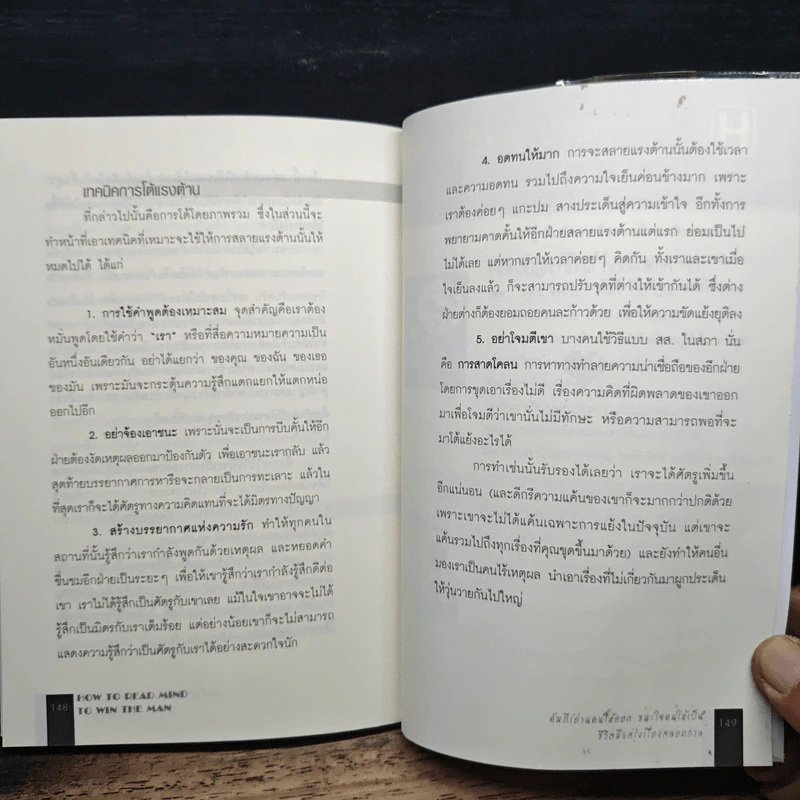 เทคนิคการโต้แรงต้าน
ที่กล่าวไปนั้นคือการโต้โดยภาพรวม ซึ่งในส่วนนี้จะ
ทำหน้าที่เอาเทคนิคที่เหมาะจะใช้ให้การสลายแรงต้านนั้นให้
หมดไปได้ ได้แก่
1. การใช้คำพูดต้องเหมาะสม จุดสำคัญคือเราต้อง
หมั่นพูดโดยใช้คำว่า "เรา" หรือที่สื่อความหมายความเป็น
อันหนึ่งอันเดียวกัน อย่าได้แยกว่า ของคุณ ของฉัน ของเธอ
ของมัน เพราะมันจะกระตุ้นความรู้สึกแตกแยกให้แตกหน่อ
ออกไปอีก
2. อย่าจ้องเอาชนะ เพราะนั่นจะเป็นการบีบคั้นให้อีก
ฝ่ายต้องงัดเหตุผลออกมาป้องกันตัว เพื่อเอาชนะเรากลับ แล้ว
สุดท้ายบรรยากาศการหารือจะกลายเป็นการทะเลาะ แล้วใน
ที่สุดเราก็จะได้ศัตรูทางความคิดแทนที่จะได้มิตรทางปัญญา
3. สร้างบรรยากาศแห่งความรัก ทำให้ทุกคนใน
สถานที่นั้นรู้สึกว่าเรากำลังพูดกันด้วยเหตุผล และหยอดคำ
ชื่นชมอีกฝ่ายเป็นระยะๆ เพื่อให้เขารู้สึกว่าเรากำลังรู้สึกดีต่อ
เขา เราไม่ได้รู้สึกเป็นศัตรูกับเขาเลย แม้ในใจเขาอาจจะไม่ได้
รู้สึกเป็นมิตรกับเราเต็มร้อย แต่อย่างน้อยเขาก็จะไม่สามารถ
แสดงความรู้สึกว่าเป็นศัตรูกับเราได้อย่างสะดวกใจนัก
148
HOW TO READ MIND
TO WIN THE MAN
4. อดทนให้มาก การจะสลายแรงต้านนั้นต้องใช้เวลา
และความอดทน รวมไปถึงความใจเย็นค่อนข้างมาก เพราะ
เราต้องค่อยๆ แกะปม สางประเด็นสู่ความเข้าใจ อีกทั้งการ
พยายามคาดคั้นให้อีกฝ่ายสลายแรงต้านแต่แรก ย่อมเป็นไป
ไม่ได้เลย แต่หากเราให้เวลาค่อยๆ คิดกัน ทั้งเราและเขาเมื่อ
ใจเย็นลงแล้ว ก็จะสามารถปรับจุดที่ต่างให้เข้ากันได้ ซึ่งต่าง
ฝ่ายต่างก็ต้องยอมถอยคนละก้าวด้วย เพื่อให้ความขัดแย้งยุติลง
5. อย่าโจมตีเขา บางคนใช้วิธีแบบ สส. ในสภา นั่น
คือ การสาดโคลน การหาทางทำลายความน่าเชื่อถือของอีกฝ่าย
โดยการขุดเอาเรื่องไม่ดี เรื่องความคิดที่ผิดพลาดของเขาออก
มาเพื่อโจมตีว่าเขานั้นไม่มีทักษะ หรือความสามารถพอที่จะ
มาโต้แย้งอะไรได้
การทำเช่นนั้นรับรองได้เลยว่า เราจะได้ศัตรูเพิ่มขึ้น
อีกแน่นอน (และดีกรีความแค้นของเขาก็จะมากกว่าปกติด้วย
เพราะเขาจะไม่ได้แค้นเฉพาะการแย้งในปัจจุบัน แต่เขาจะ
แค้นรวมไปถึงทุกเรื่องที่คุณขุดขึ้นมาด้วย) และยังทำให้คนอื่น
มองเราเป็นคนไร้เหตุผล นำเอาเรื่องที่ไม่เกี่ยวกันมาผูกประเด็น
ให้วุ่นวายกันไปใหญ่
คัมภีร์อ่านคนให้ออก ชนะใจคนให้เป็น
149